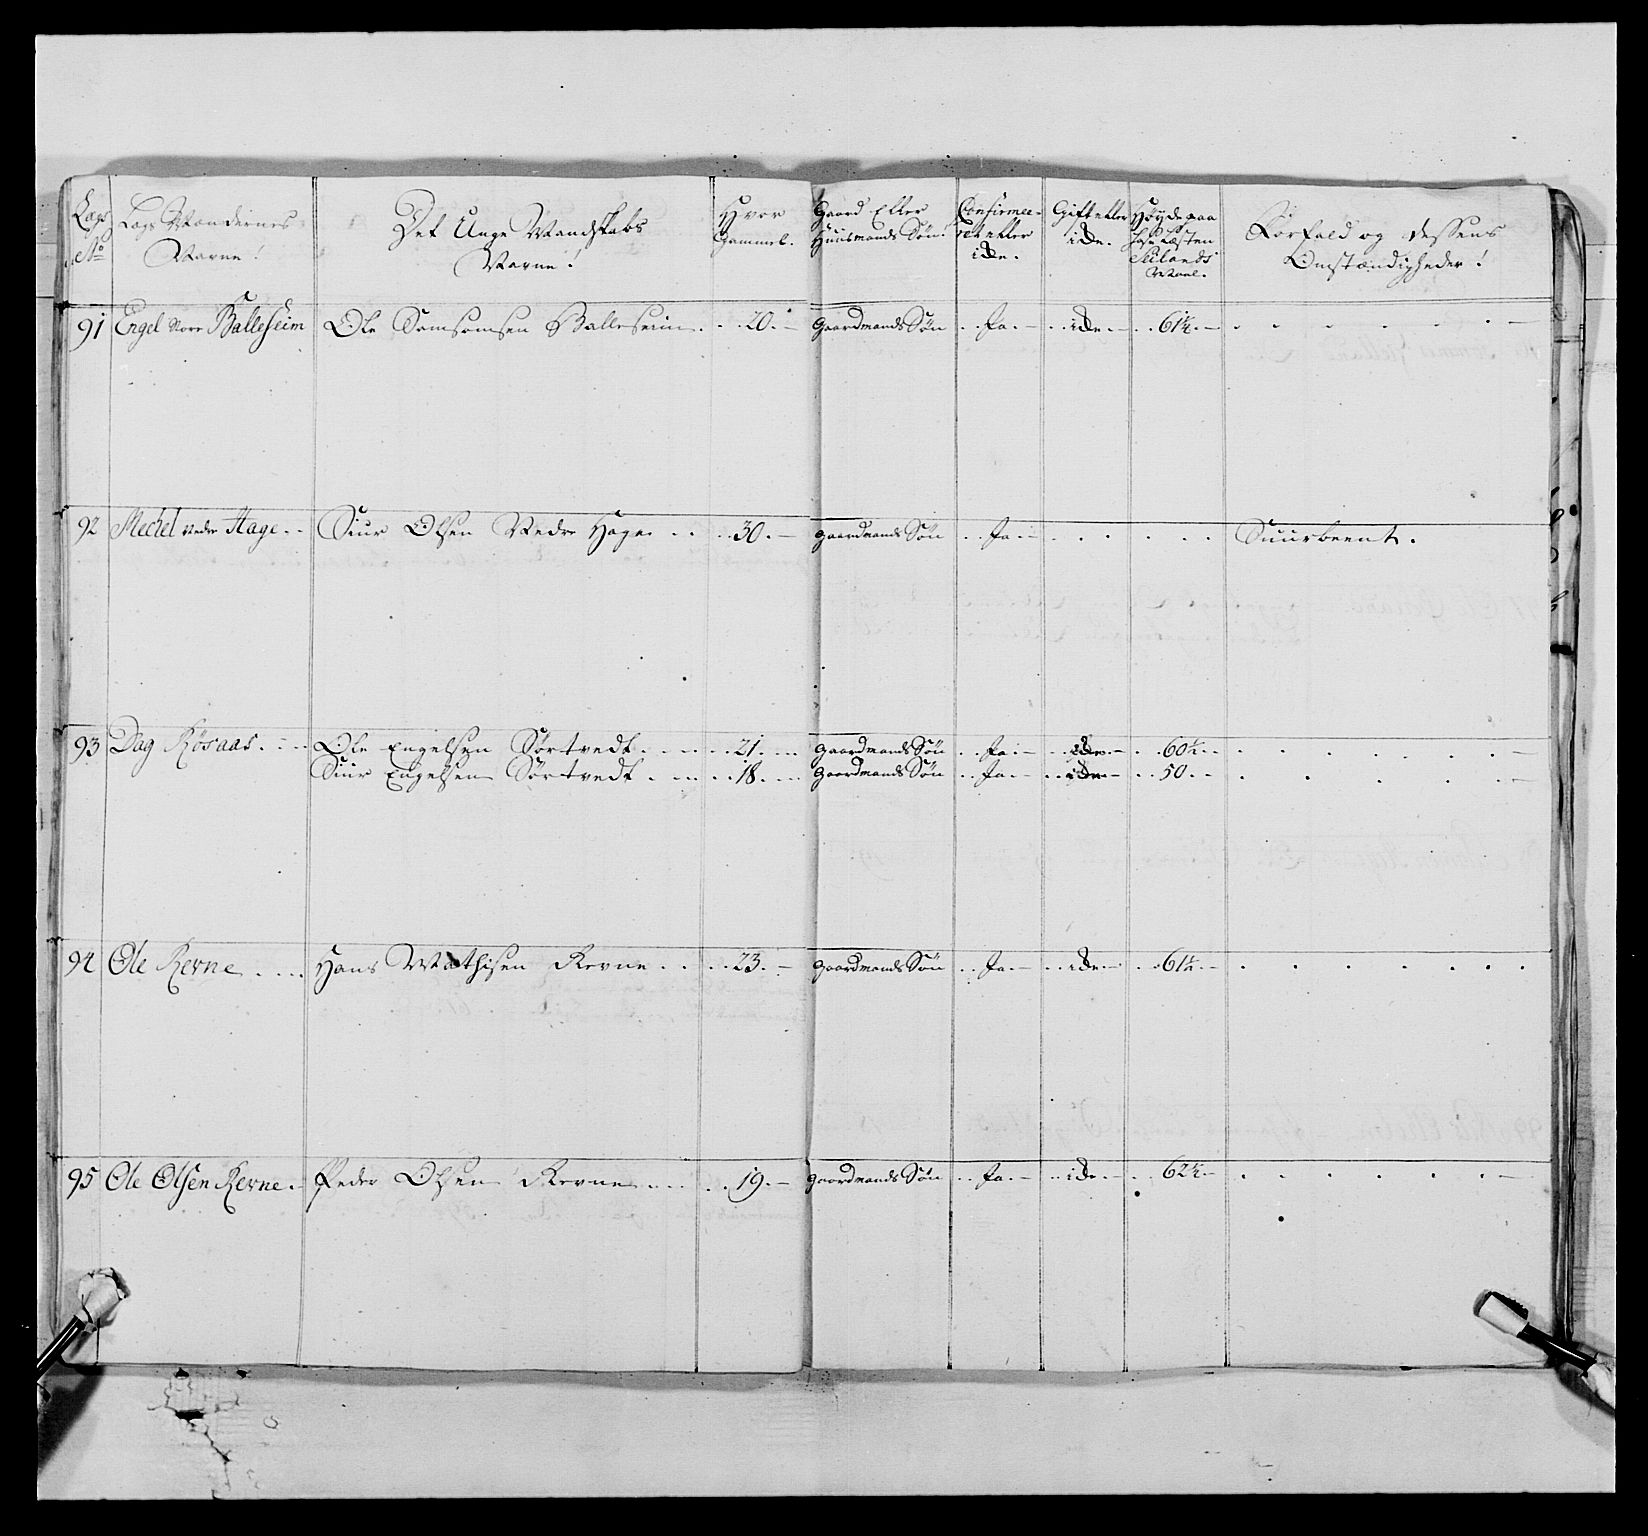 Lags No | Lags Mændernes Navne! | Det Unge Mandskabs Navne! | Hvor Gammel. | Gaard Eller Huusmands Søn. | Confirmeeret eller icke. | Gift eller icke. | Høyde paa Læsten Siælands Maal. | Forfald og dessens Omstændigheder!
91 | Engel Store Balleseim | Ole Samsonsen Balleseim | 20. | Gaardmands Søn | Ja | icke | 61½
92 | Mechel Nedre Hage | Siur Olsen Nedre Hage | 30. | gaardmands Søn | Ja | Suurbeent.
93 | Dag Røsaas | Ole Engelsen Sørtvedt | 21. | gaardmands Søn | Ja | icke | 60½
Siur Engelsen Sørtvedt | 18. | gaardmands Søn | Ja | icke | 50
94 | Ole Revne | Hans Mathisen Revne | 23. | gaardmands Søn | Ja | icke | 61½
95 | Ole Olsen Revne | Peder Olsen Revne | 19. | gaardmands Søn | Ja | icke | 62½